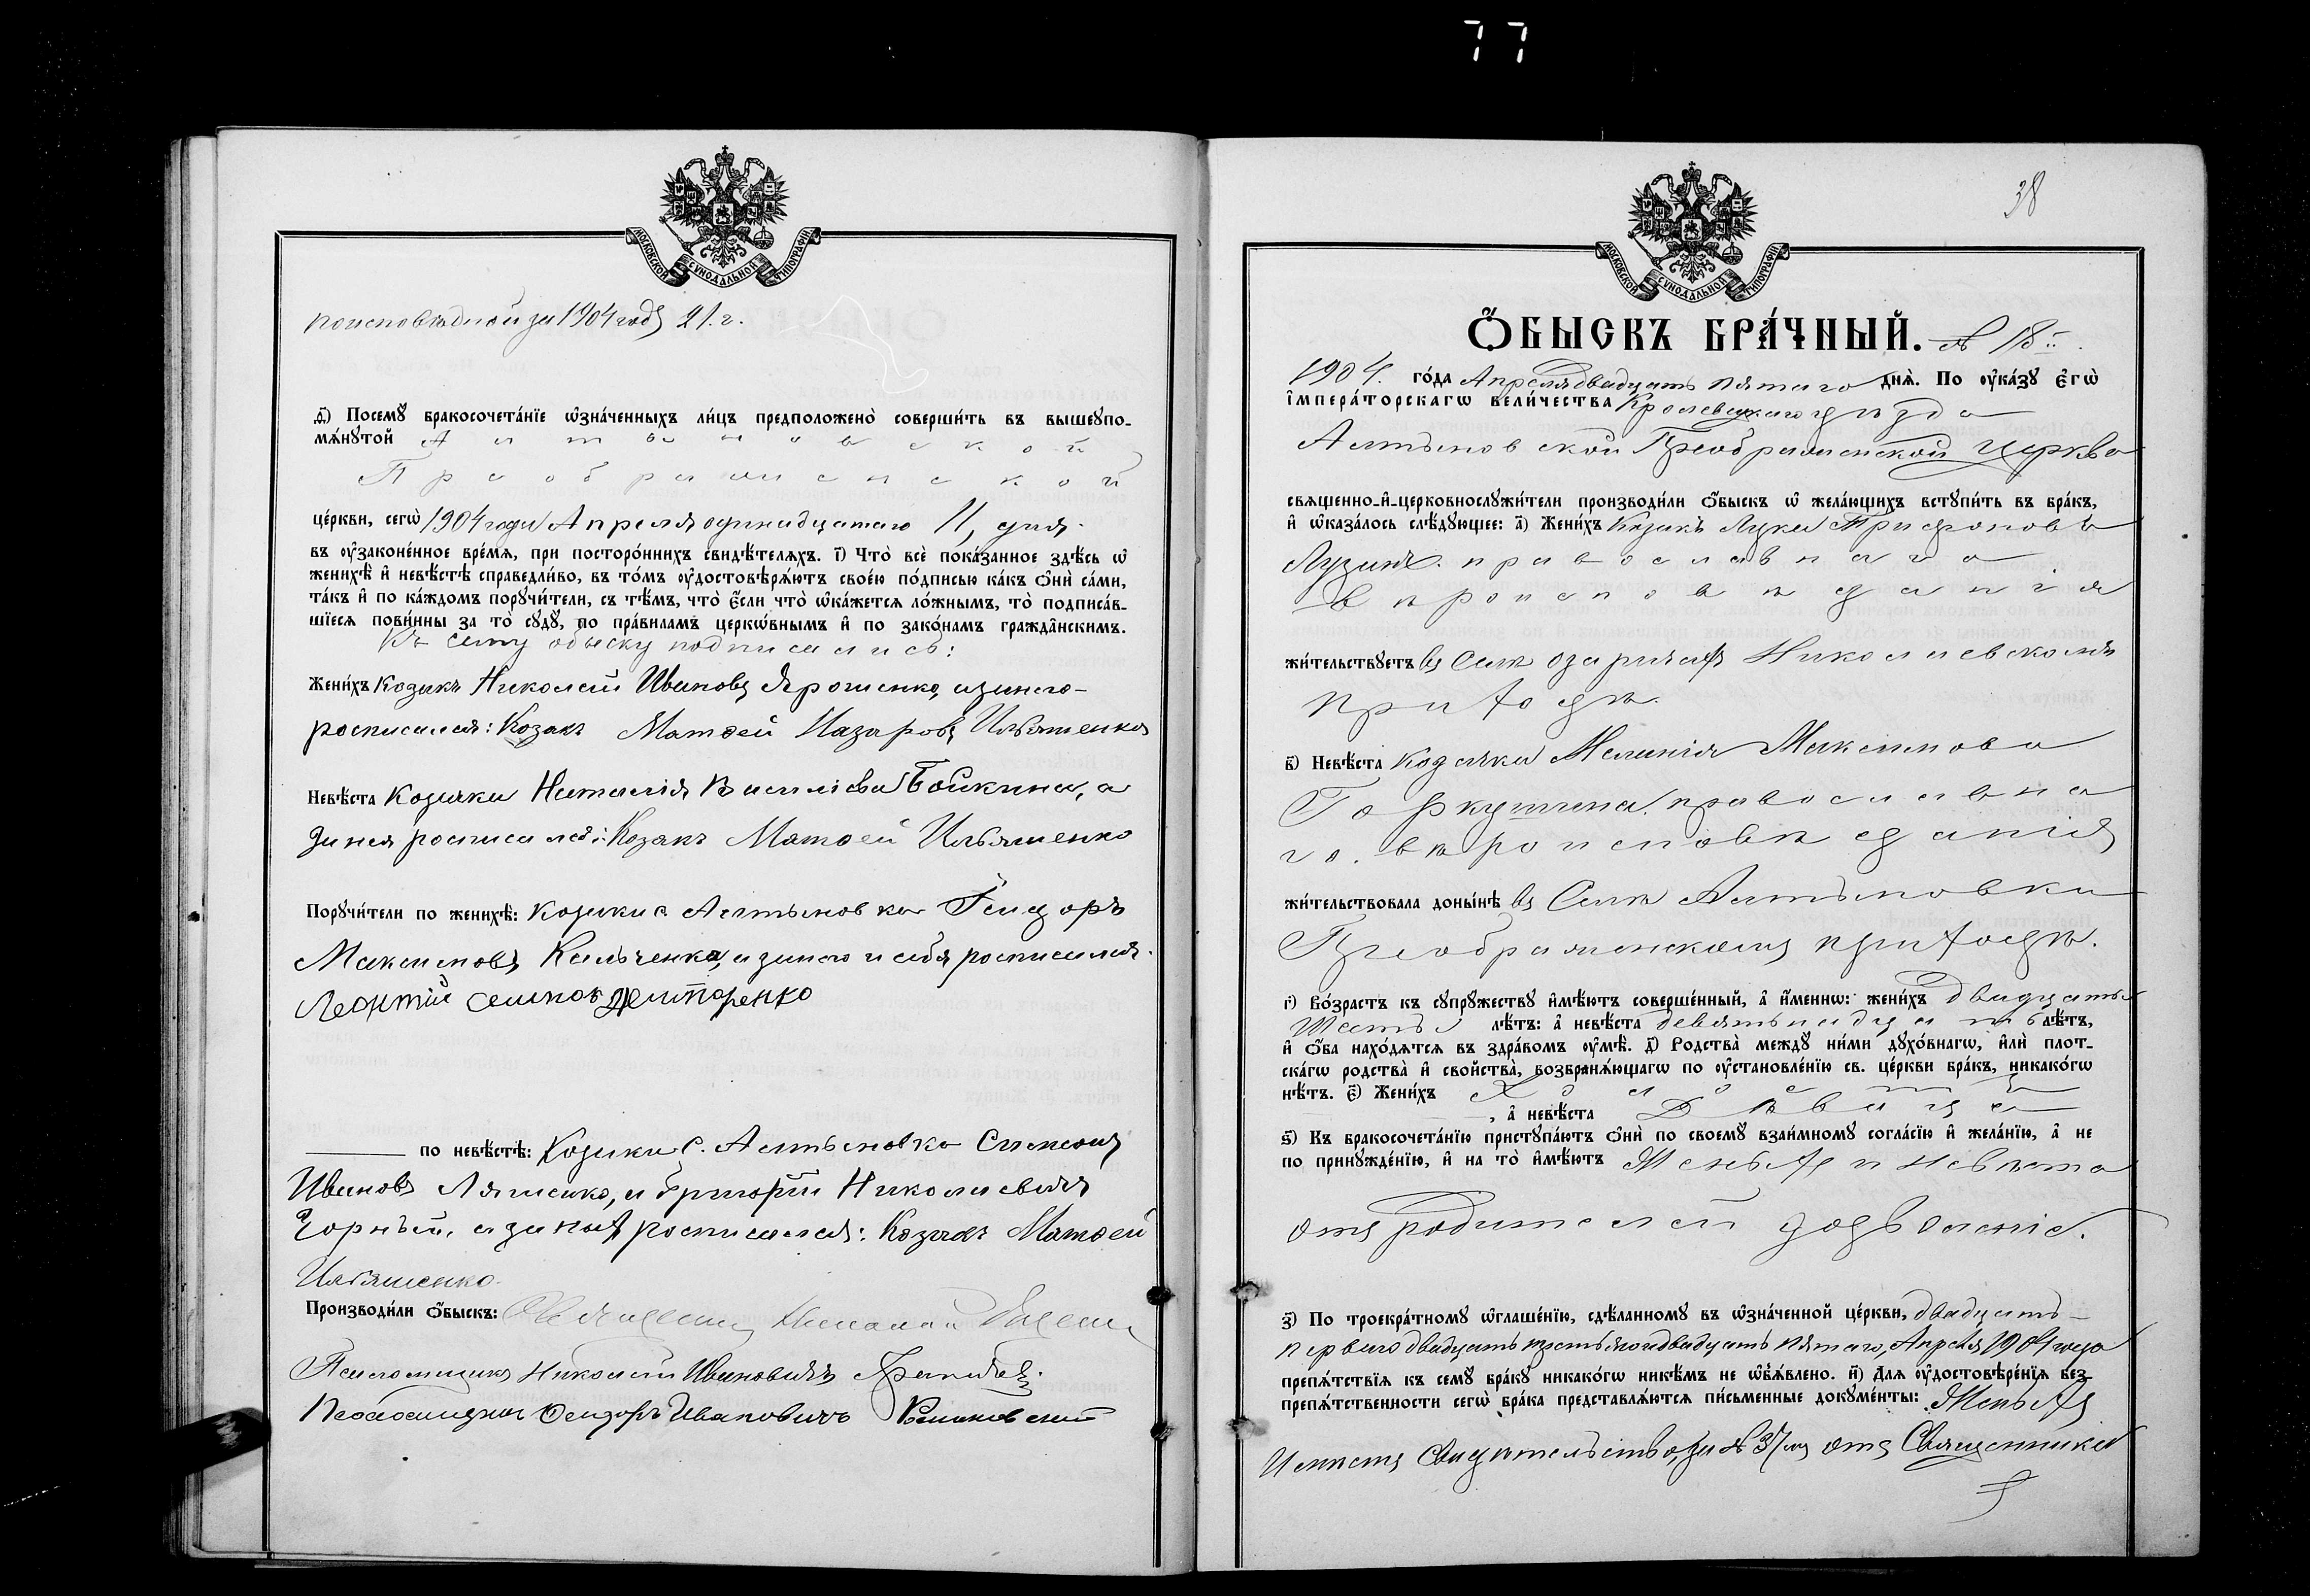 77
МОСКОВСКОЙ СѴНОДАЛЬНОЙ ТИПОГРАФІИ
поисповѣдной за 1904 годъ 21. г.
д҃) Посемꙋ̀ бракосочета́нїе ѡ҆зна́ченныхъ ли́цъ предположено̀ соверши́ть въ вышеꙋпо-
мѧ́нꙋтой Алтыновской
Преображенской
це́ркви, сегѡ̀ 1904 года Апреля одинадцатаго 11, дня.
въ ᲂу҆законе́нное вре́мѧ, при посторо́ннихъ свидѣ́телѧхъ. і҃) Что̀ всѐ пока́занное здѣ́сь ѡ҆
женихѣ̀ и҆ невѣ́стѣ справедли́во, въ то́мъ ᲂу҆достовѣрѧ́ютъ свое́ю по́дписью ка́къ ѻ҆нѝ са́ми,
та́къ и҆ по ка́ждомъ порꙋчи́тели, съ тѣ́мъ, что̀ є҆́сли что̀ ѡ҆ка́жетсѧ ло́жнымъ, то̀ подписа́в-
шїесѧ пови́нны за то̀ сꙋдꙋ̀, по пра́виламъ церкѡ́внымъ и҆ по зако́намъ гражда̂нскимъ.
Къ сему обыску подписались:
Жени́хъ Козакъ Николай Ивановъ Ярошенко, азанего-
росписался: Козакъ Матвей Назаровъ Ильяшенко
Невѣ́ста козачка Наталія Василіева Бойкина, а
занея росписался: Козакъ Матвей Ильяшенко
Порꙋчи́тели по женихѣ̀: козаки с. Алтыновки
Максимовъ Кальченко, азанего и себя росписался.
Леонтій
по невѣ́стѣ: Козаки С. Алтыновки Симеонъ
Ивановъ Ляшенко, и Григорій Николаевичъ
Чорный, а заныхъ росписался: Козакъ Матвей
Ильяшенко.
Производи́ли ѻ҆́быскъ: Священникъ Николай
Псаломщикъ Николай Ивановичъ
Псаломщикъ Ѳеодоръ Ивановичъ
38
МОСКОВСКОЙ СѴНОДАЛЬНОЙ ТИПОГРАФІИ
Ѻ҆́БЫСКЪ БРА́ЧНЫЙ. № 18
1904. го́да Апреля двадцать пятаго днѧ̀. По ᲂу҆ка́зꙋ Є҆гѡ̀
І҆мпера́торскагѡ вели́чества Кролевецкаго уѣзда
Алтыновской Преображенской церкви
свѧщенно-и҆-церковнослꙋжи́тели производи́ли ѻ҆́быскъ ѡ҆ жела́ющихъ встꙋпи́ть въ бра́къ,
и҆ ѡ҆каза́лось слѣ́дꙋющее: а҃) Жени́хъ Козакъ Лука Трифоновъ
Лузинъ. православнаго
вѣроисповѣданія
жи́тельствꙋетъ въ Селѣ озаричахъ Николаевскомъ
приходѣ.
в҃) Невѣ́ста козачка Меланія Максимова
православна
го. вѣроисповѣданія
жи́тельствовала доны́нѣ въ Селѣ Алтыновки
Преображенскомъ приходѣ.
г҃) Во́зрастъ къ сꙋпрꙋжествꙋ и҆мѣ́ютъ соверше́нный, а҆ и҆́менно: жени́хъ двадцать
шесть лѣ́тъ: а҆ невѣ́ста девятьнадцать лѣ́тъ,
и҆ ѻ҆́ба нахо́дѧтсѧ въ здра́вомъ ᲂу҆мѣ̀. д҃) Родства̀ междꙋ ни́ми дꙋхо́внагѡ, и҆лѝ плот-
ска́гѡ родства̀ и҆ свойства̀, возбранѧ́ющагѡ по ᲂу҆становле́нїю св. це́ркви бра́къ, никако́гѡ
нѣ́тъ. є҃) Жени́хъ Холостъ
, а҆ невѣ́ста Дѣвица
ѕ҃) Къ бракосочета́нїю пристꙋпа́ютъ ѻ҆нѝ по своемꙋ̀ взаи́мномꙋ согла́сїю и҆ жела́нїю, а҆ не
по принꙋжде́нїю, и҆ на то̀ и҆мѣ́ютъ Женыхъ и невѣста
отъ родителей дозволеніе.
з҃) По троекра́тномꙋ ѡ҆глаше́нїю, сдѣ́ланномꙋ въ ѡ҆зна́ченной це́ркви, двадцать-
перваго двадцать третьяго и двадцать пятаго, Апреля 1904 года
препѧ́тствїѧ къ семꙋ̀ бра́кꙋ никако́гѡ никѣ́мъ не ѡ҆б̾ѧ́влено. и҃) Длѧ ᲂу҆достовѣре́нїѧ без-
препѧ́тственности сегѡ̀ бра́ка представлѧ́ютсѧ пи́сьменные докꙋме́нты: Женыхъ
Имѣетъ Свидѣтельство, за № 37 отъ Священника